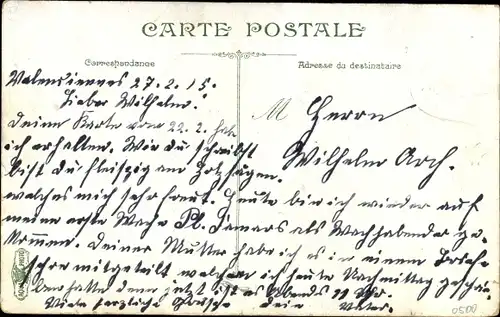 CARTE POSTALE
Correspondance
Adresse du destinataire
Valenciennes 27.2.15.
Lieber Wilhelm.
Deine Karte vom 22.2. hab
ich erhalten. Wie du schreibst
bist du fleißig am Holzsägen,
welches mich sehr freut. Heute bin ich wieder auf
meine erste Wache Pl. als Wachhabender ge-
kommen. Deiner Mutter habe ich es in einem
schon mitgeteilt welchen ich heute Nachmittag
hatte denn jetzt ist es Abends 11 Uhr.
Viele herzliche Grüsse Dein Vater.
M Herrn
Wilhelm
0500